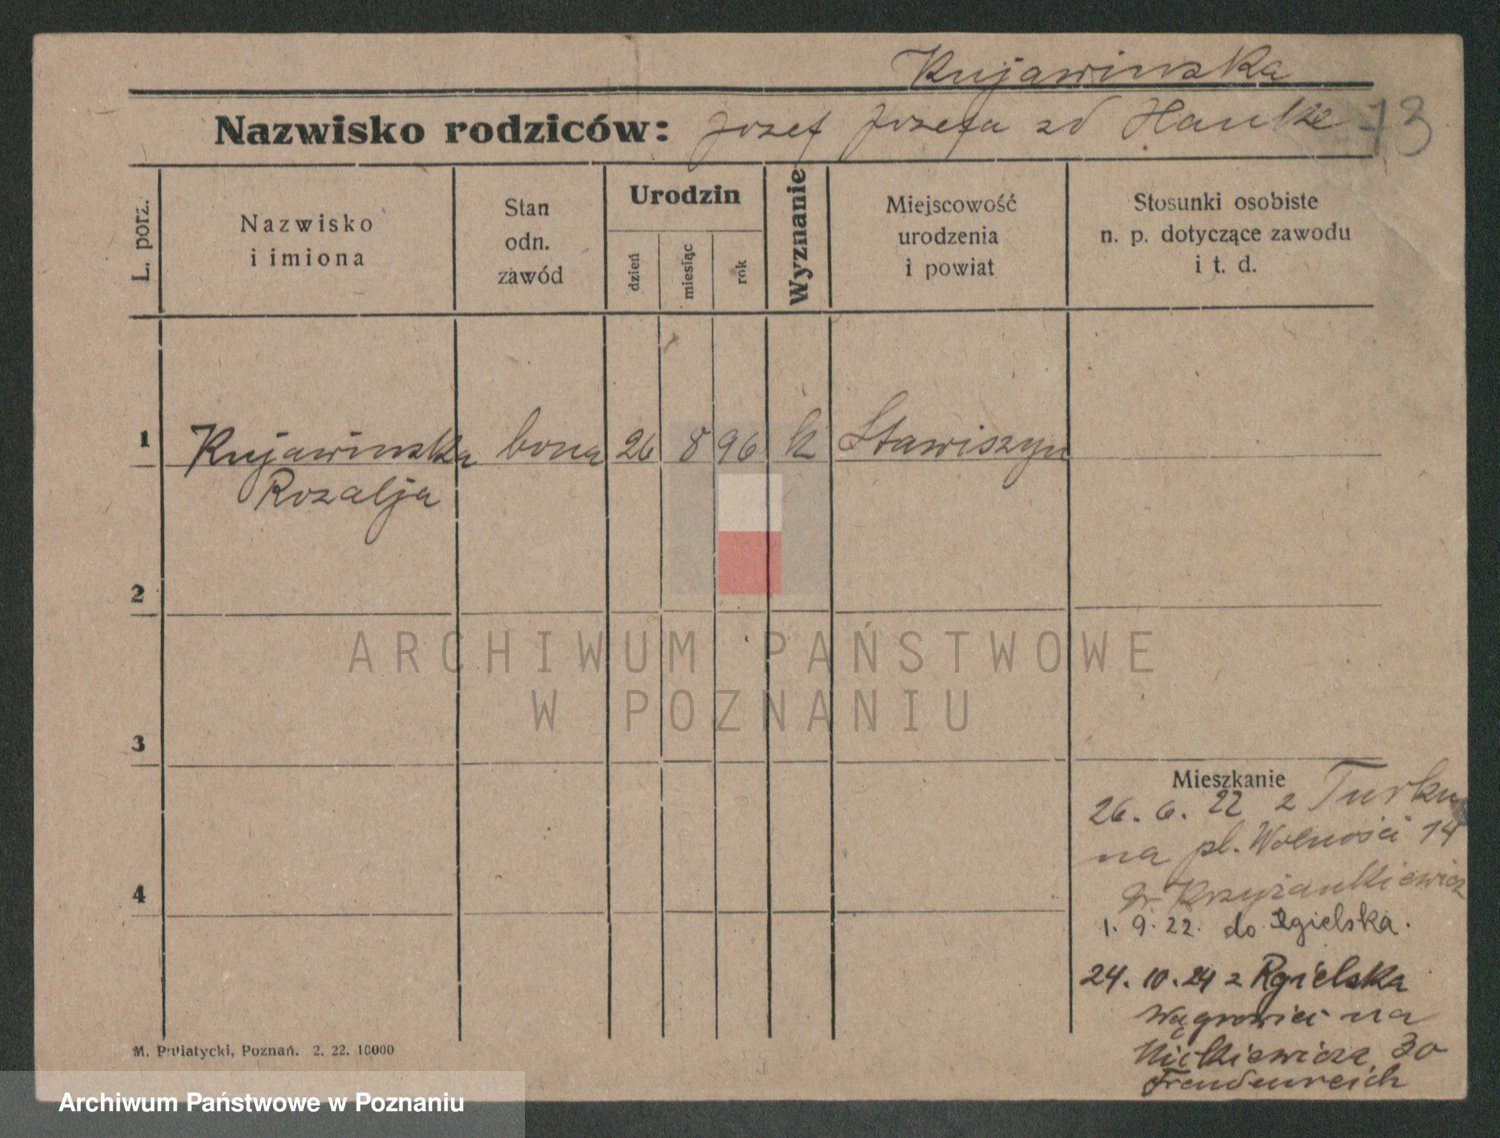 Kujawinska
Nazwisko rodziców: Jozef Jozefa zd Hanke 73
L. porz.
Nazwisko
i imiona
Stan
odn.
zawód
Urodzin
dzień
miesiąc
rok
Wyznanie
Miejscowość
urodzenia
i powiat
Stosunki osobiste
n. p. dotyczące zawodu
i t. d.
1 Kujawinska bona 26 8 96 k Stawiszyn
Rozalja
2
3
4
Mieszkanie
26. 6. 22 z Turku
na pl. Wolności 14
Dr Krzyżankiewicz
1. 9. 22. do Rgielska.
24. 10. 24 z Rgielska
Wągrowiec na
Mickiewicza 30
Freudenreich
M. Putiatycki, Poznań. 2. 22. 10000
ARCHIWUM PAŃSTWOWE
W POZNANIU
Archiwum Państwowe w Poznaniu